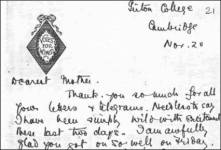 College 21
Cambridge
Nov. 20
Dearest Mother.
Thank you so much for all
your letters & telegrams. Needless to say
I have been simply wild with excitement
these last two days. I am awfully
glad you got on so well on Friday.